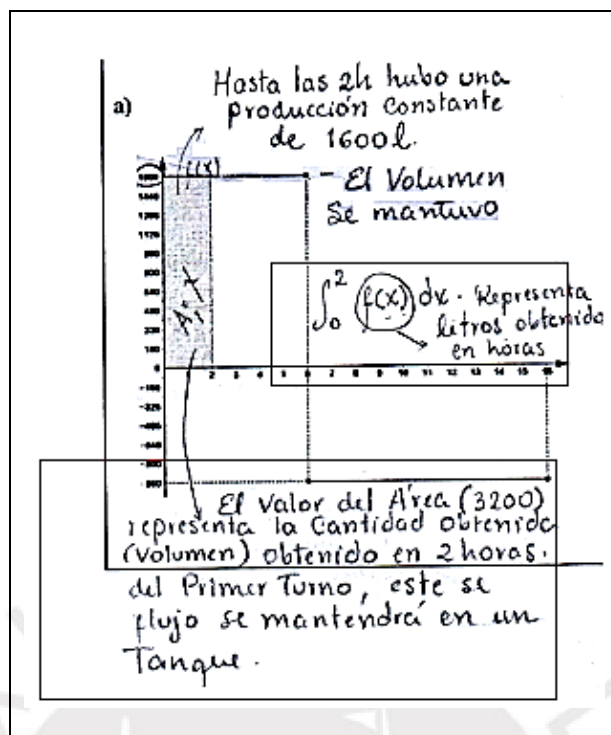 Hasta las 2h hubo una
a) producción constante
de 1600l.
f(x)
- El Volumen
Se mantuvo
∫₀² f(x) dx. Representa
litros obtenido
en horas
0 1 2 3 4 5 6 7 8 9 10 11 12 13 14 15 16
El Valor del Área (3200)
representa la Cantidad Obtenida
(Volumen) obtenido en 2 horas.
del Primer Turno, este se
flujo se mantendrá en un
Tanque.